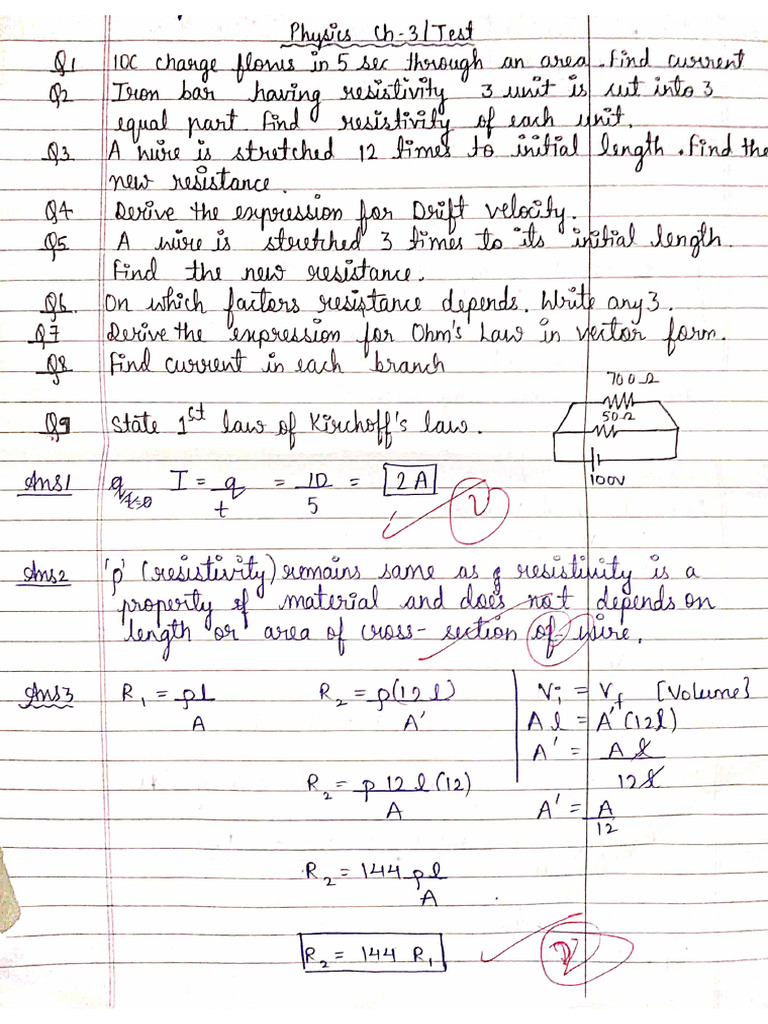 Physics Ch-3/Test
Q1 10C charge flows in 5 sec through an area. Find current
Q2 Iron bar having resistivity 3 unit is cut into 3
equal part. Find resistivity of each unit.
Q3 A wire is stretched 12 times to initial length. Find the
new resistance.
Q4 Derive the expression for Drift velocity.
Q5 A wire is stretched 3 times to its initial length.
Find the new resistance.
Q6. On which factors resistance depends. Write any 3.
Q7 Derive the expression for Ohm's Law in vector form.
Q8 Find current in each branch
700Ω
50Ω
100V
Q9 State 1st law of Kirchoff's law.
Ans1 I = q/t = 10/5 = 2A
Ans2 'ρ' (resistivity) remains same as resistivity is a
property of material and does not depends on
length or area of cross-section of wire.
Ans3 R₁ = ρl/A R₂ = ρ(12l)/A' Vi = Vf [Volume]
Al = A'(12l)
A' = Al/12l
R₂ = ρ12l(12)/A A' = A/12
R₂ = 144ρl/A
R₂ = 144 R₁